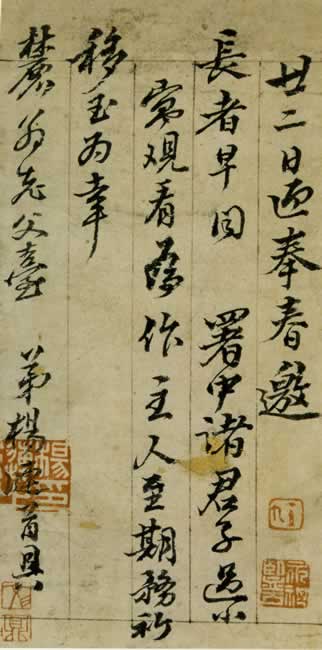 廿二日迎奉春邀
長者早同 署中諸君子過小
寓觀看為作主人至期務祈
移玉為幸
麓翁老父臺 弟楊漣首具